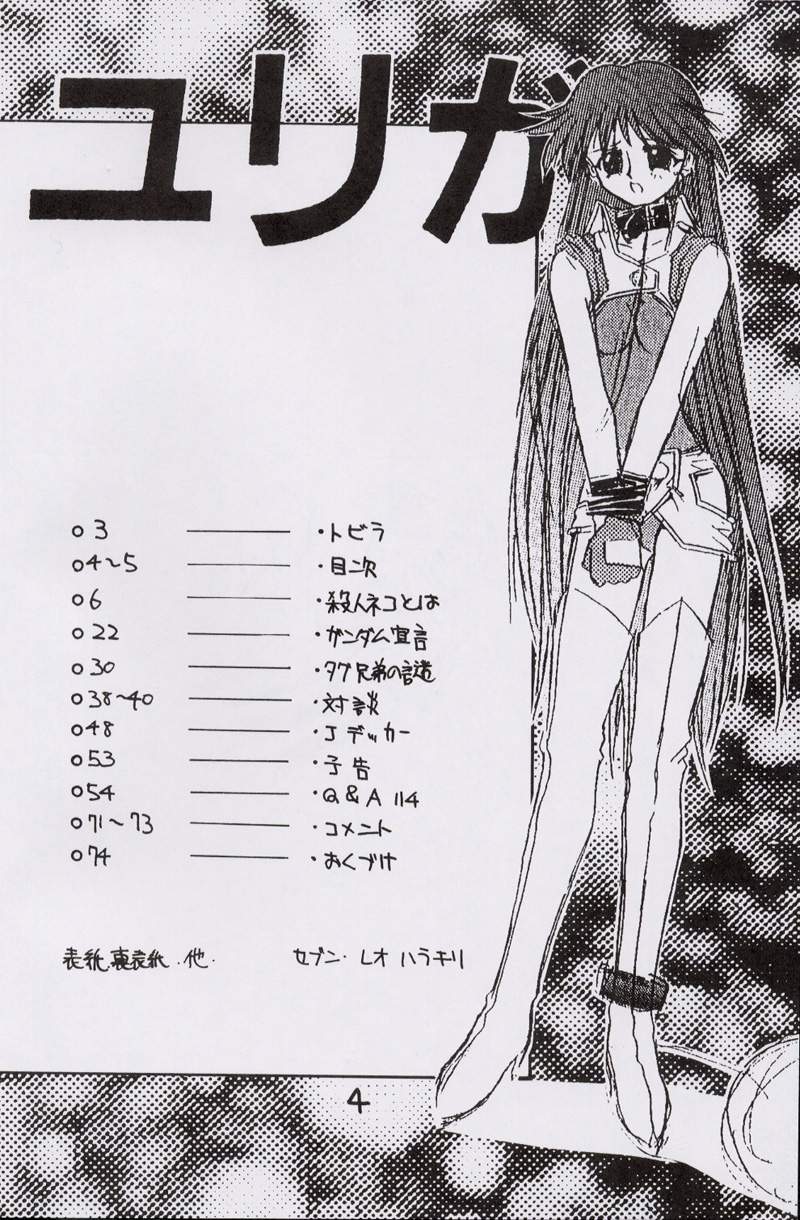 ユリガ
03 ・トビラ
04〜5 ・目次
06 ・殺人ネコとは
022 ・ガンダム宣言
030 ・タグ兄弟の
038〜40 ・対談
048 ・Jデッカー
053 ・予告
054 ・Q&A 114
071〜73 ・コメント
074 ・おくづけ
表紙.裏表紙.他. セブン・レオ ハラキリ
4